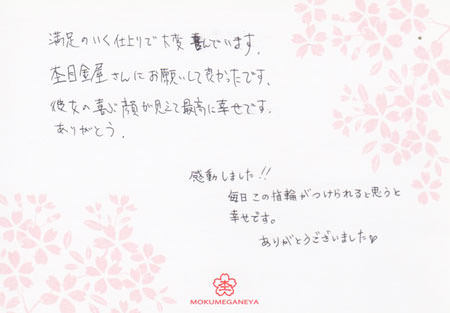 満足のいく仕上りで大変喜んでいます。
杢目金屋さんにお願いして良かったです。
彼女の喜ぶ顔が見えて最高に幸せです。
ありがとう。
感動しました!!
毎日この指輪がつけられると思うと
幸せです。
ありがとうございました♡
MOKUMEGANEYA